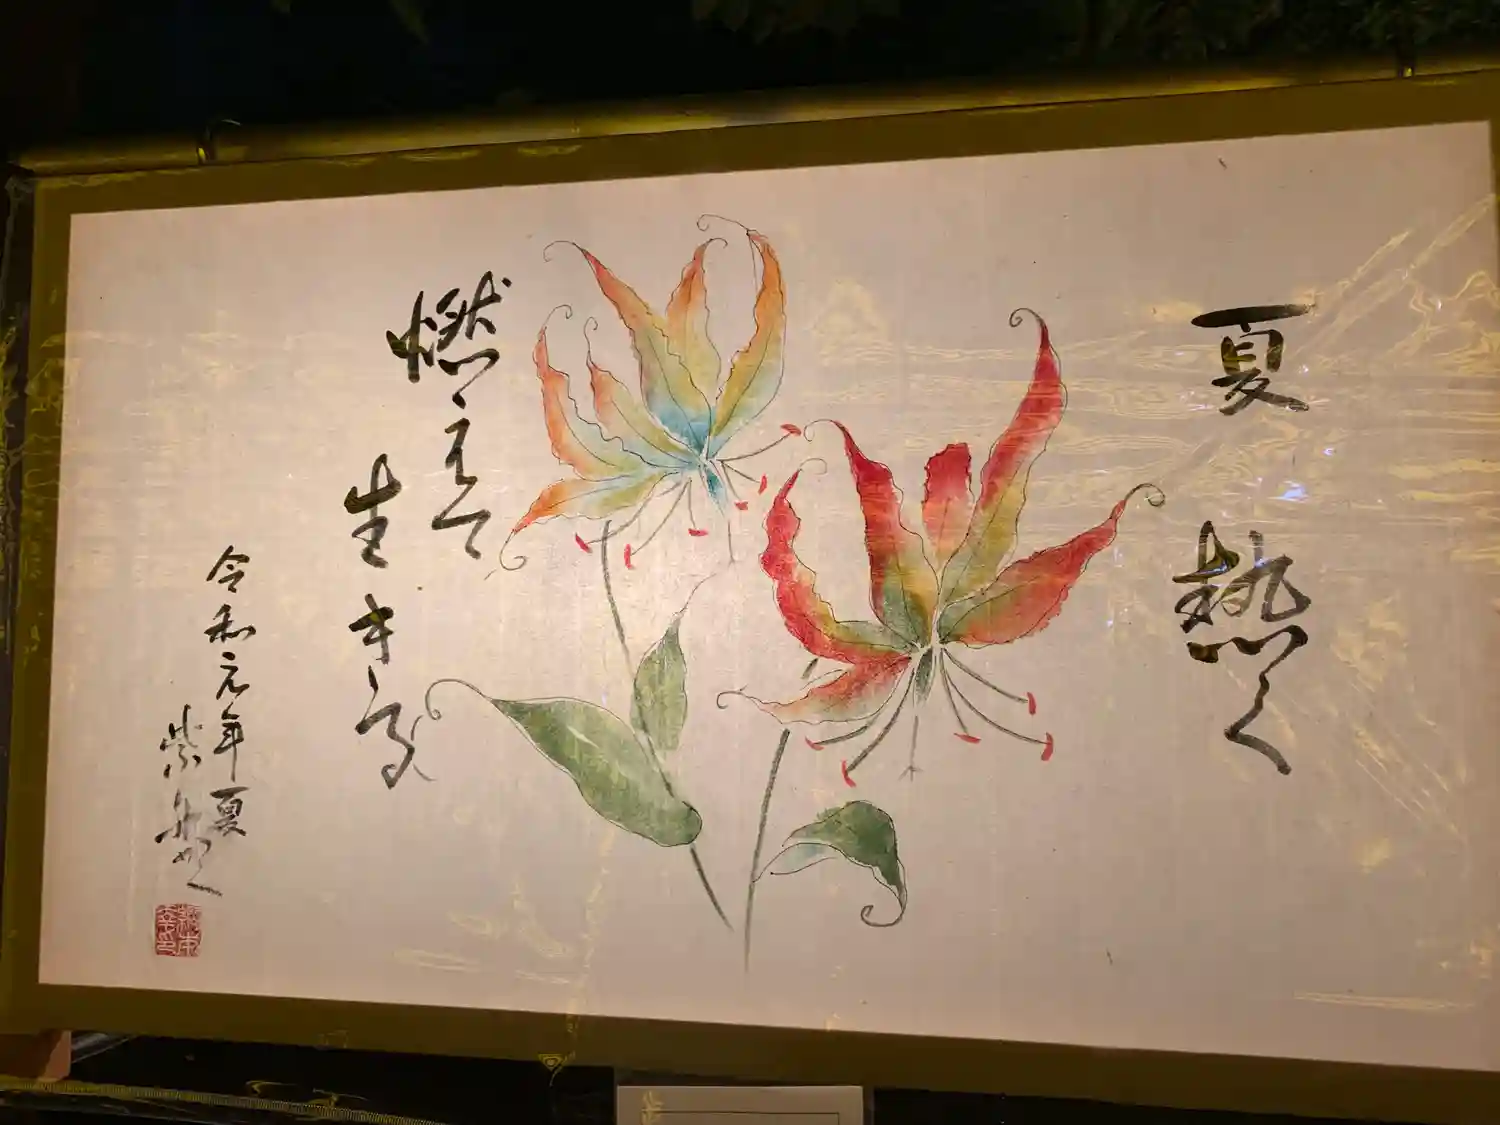 夏
熱く
燃えて
生きる
令和元年夏
紫舟